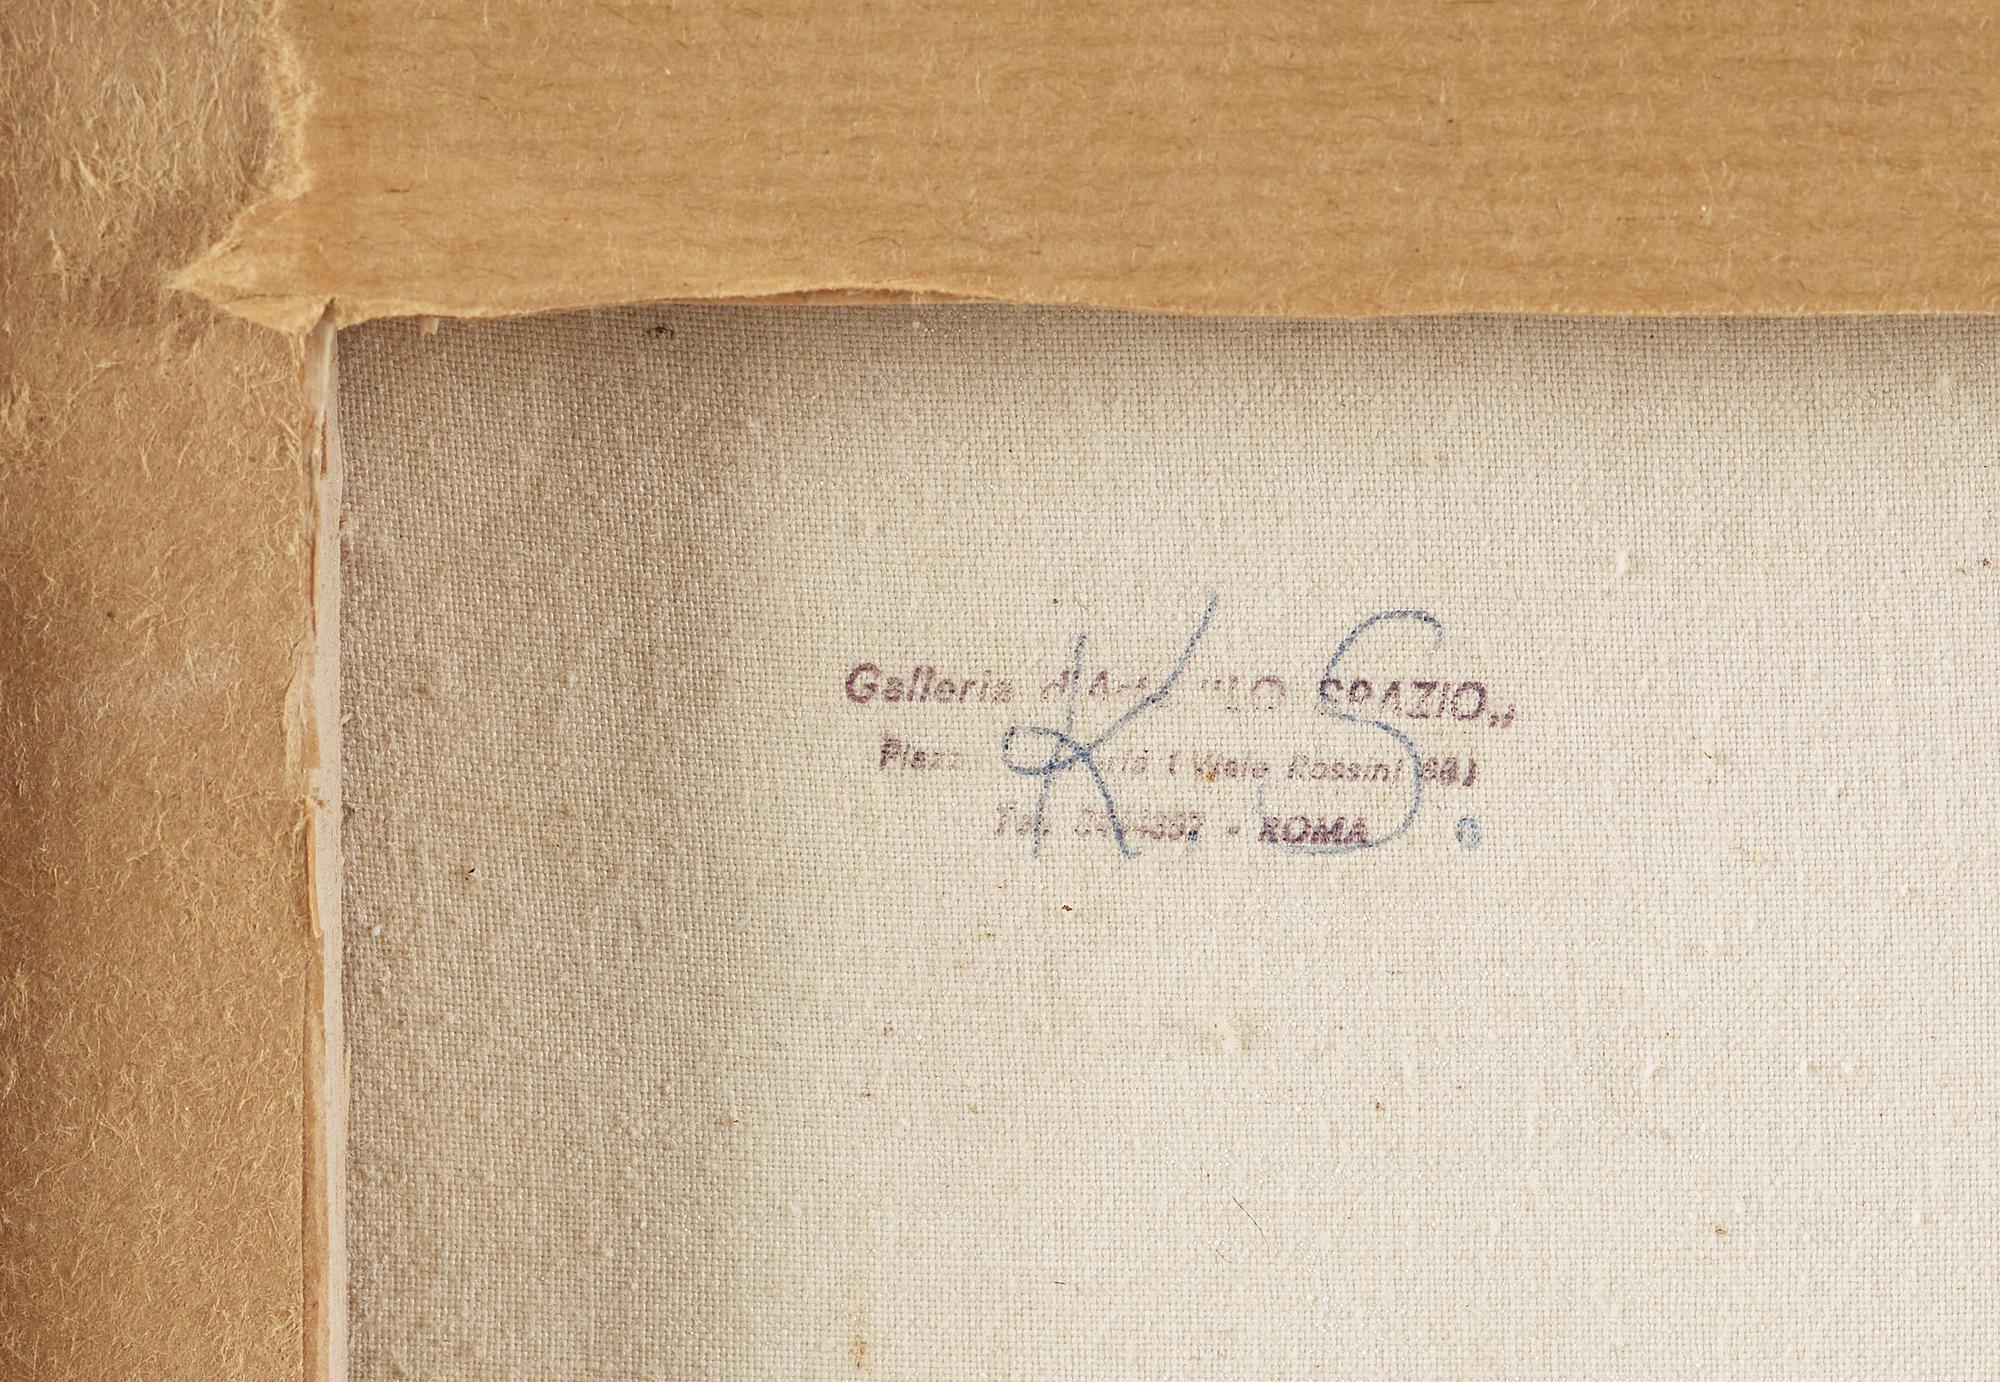 Galleria d'Arte "LO SPAZIO„
Piazza ( Viale Rossini
Tel. - ROMA
K S.